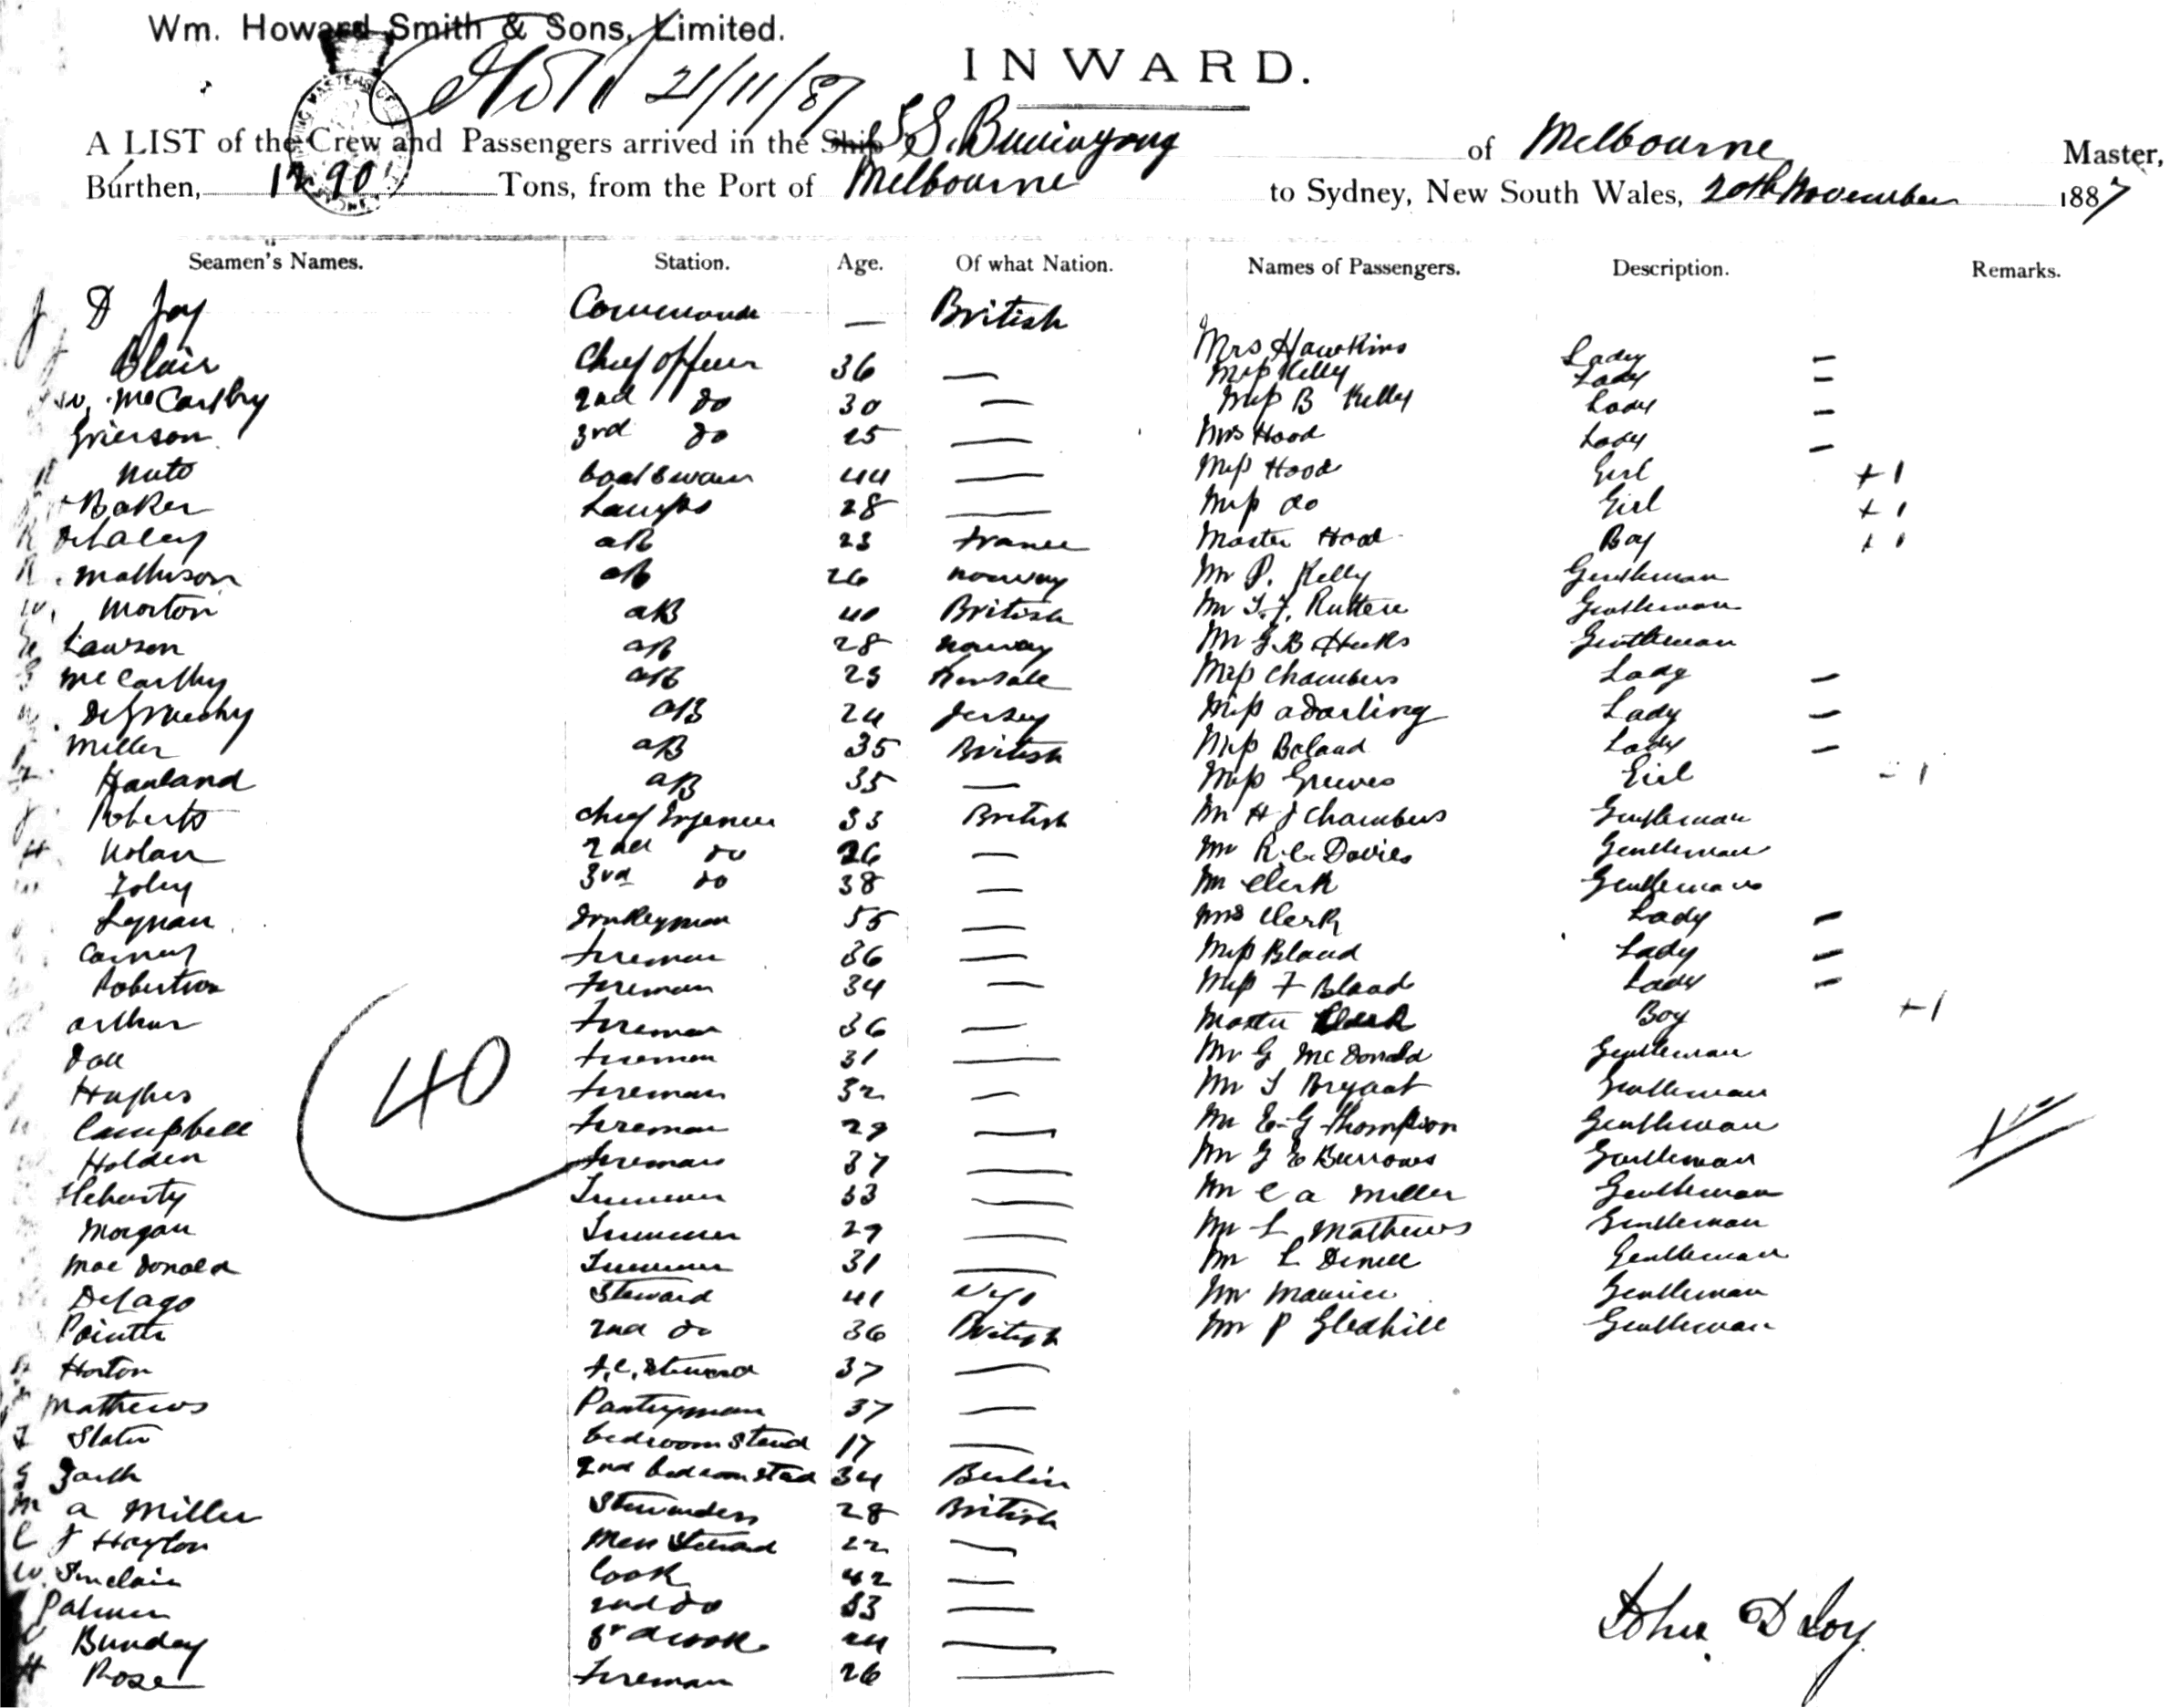 Wm. Howard Smith & Sons, Limited.
21/11/87
INWARD.
A LIST of the Crew and Passengers arrived in the Ship S.S. Buninyong of Melbourne Master,
Burthen, 1290 Tons, from the Port of Melbourne to Sydney, New South Wales, 20th November 1887
Seamen's Names. Station. Age. Of what Nation. Names of Passengers. Description. Remarks.
J D Joy — British
Mrs Hawkins Lady —
Blair Chief Officer 36 — Miss Kelly Lady —
W. McCarthy 2nd do 30 — Miss B Kelly Lady —
Grierson 3rd do 25 — Mrs Hood Lady —
Nuto Boatswain 44 — Miss Hood Girl + 1
Baker Lamps 28 — Miss do Girl + 1
AB 23 France Master Hood Boy + 1
Mathison AB 26 Norway Mr P. Kelly Gentleman
W. Morton AB 40 British Mr Gentleman
Lawson AB 28 Norway Mr G. B Gentleman
McCarthy AB 25 Kinsale Miss Chambers Lady —
DeGruchy AB 24 Jersey Miss A Darling Lady —
Miller AB 35 British Miss Boland Lady —
AB 35 — Miss Greeves Girl 1
J Roberts Chief Engineer 33 British Mr H J Chambers Gentleman
H Nolan 2nd do 26 — Mr R. C. Davies Gentleman
Foley 3rd do 38 — Mr Clerk Gentleman
Donkeyman 55 — Mrs Clerk Lady —
Fireman 36 — Miss Bland Lady —
Robertson Fireman 34 — Miss F Bland Lady —
Arthur Fireman 36 — Master Clerk Boy +1
Fireman 31 — Mr G McDonald Gentleman
40
Hughes Fireman 32 — Mr Bryant Gentleman
Campbell Fireman 29 — Mr E. G Thompson Gentleman
Holden Fireman 37 — Mr G E Burrows Gentleman
Trimmer 33 — Mr C A Miller Gentleman
Morgan Trimmer 29 — Mr L Mathews Gentleman
MacDonald Trimmer 31 — Mr L Gentleman
Delago Steward 41 Mr Maurice Gentleman
Pointer 2nd do 36 British Mr P Gledhill Gentleman
Horton F.C. Steward 37 —
Mathews Pantryman 37 —
Slater Bedroom Steward 17 —
2nd Bedroom Sted 34 Berlin
M A Miller Stewardess 28 British
C J Haylor Mess Steward 22 —
W. Sinclair Cook 42 —
Palmer 2nd do 33 —
Bunday 3rd Cook 24 —
H Rose Fireman 26 —
John D Joy